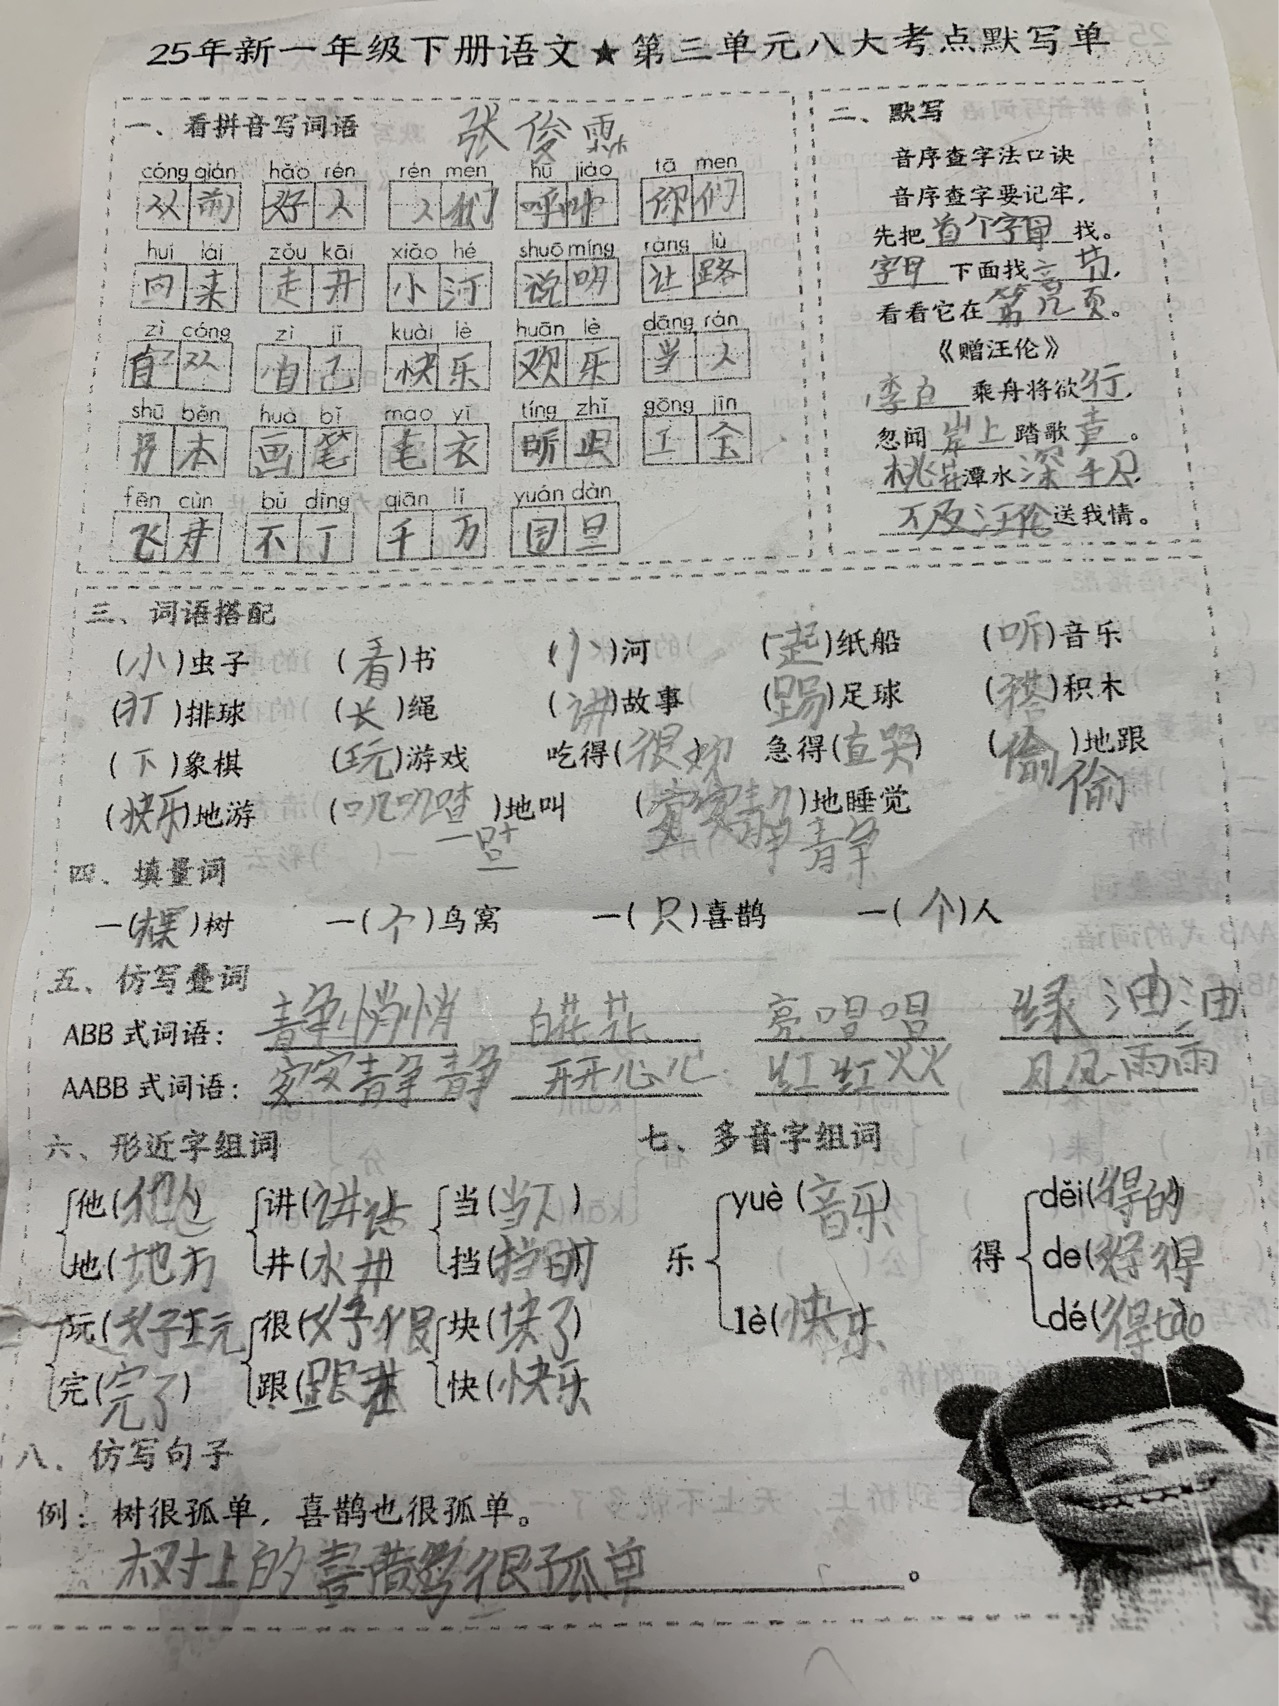 25年新一年级下册语文★第三单元八大考点默写单
一、看拼音写词语
张俊
cóng qián hǎo rén rén men hū jiào tā men
从 前 好 人 人 们 呼 叫 你 们
huí lái zǒu kāi xiǎo hé shuō míng ràng lù
回 来 走 开 小 河 说 明 让 路
zì cóng zì jǐ kuài lè huān lè dāng rán
自 从 自 己 快 乐 欢 乐 当 人
shū běn huà bǐ mao yī tíng zhǐ gōng jīn
书 本 画 笔 毛 衣 听 工 金
fēn cùn bú dīng qiān lǐ yuán dàn
飞 不 丁 千 万 园 旦
二、默写
音序查字法口诀
音序查字要记牢，
先把首个字母找。
字母下面找音节，
看看它在第几页。
《赠汪伦》
李白乘舟将欲行，
忽闻岸上踏歌声。
桃花潭水深千尺，
不及汪伦送我情。
三、词语搭配
(小)虫子 (看)书 (小)河 (一起)纸船 (听)音乐
(打)排球 (长)绳 (讲)故事 (踢)足球 (搭)积木
(下)象棋 (玩)游戏 吃得(很欢) 急得(直哭) (偷偷)地跟
(快乐)地游 (叽叽喳喳)地叫 (安安静静)地睡觉
四、填量词
一(棵)树 一(个)鸟窝 一(只)喜鹊 一(个)人
五、仿写叠词
ABB式词语：静悄悄 白花花 亮唱唱 绿油油
AABB式词语：安安静静 开开心心 红红火火 风风雨雨
六、形近字组词
他(他人) 讲(讲话) 当(当人)
地(地方) 井(水井) 挡(挡)
玩(好玩) 很(好很) 块(快了)
完(完了) 跟(跟) 快(快乐)
七、多音字组词
乐 yuè(音乐) lè(快乐)
得 děi(得的) de(得得) dé(得tào)
八、仿写句子
例：树很孤单，喜鹊也很孤单。
树上的喜鹊很孤单。